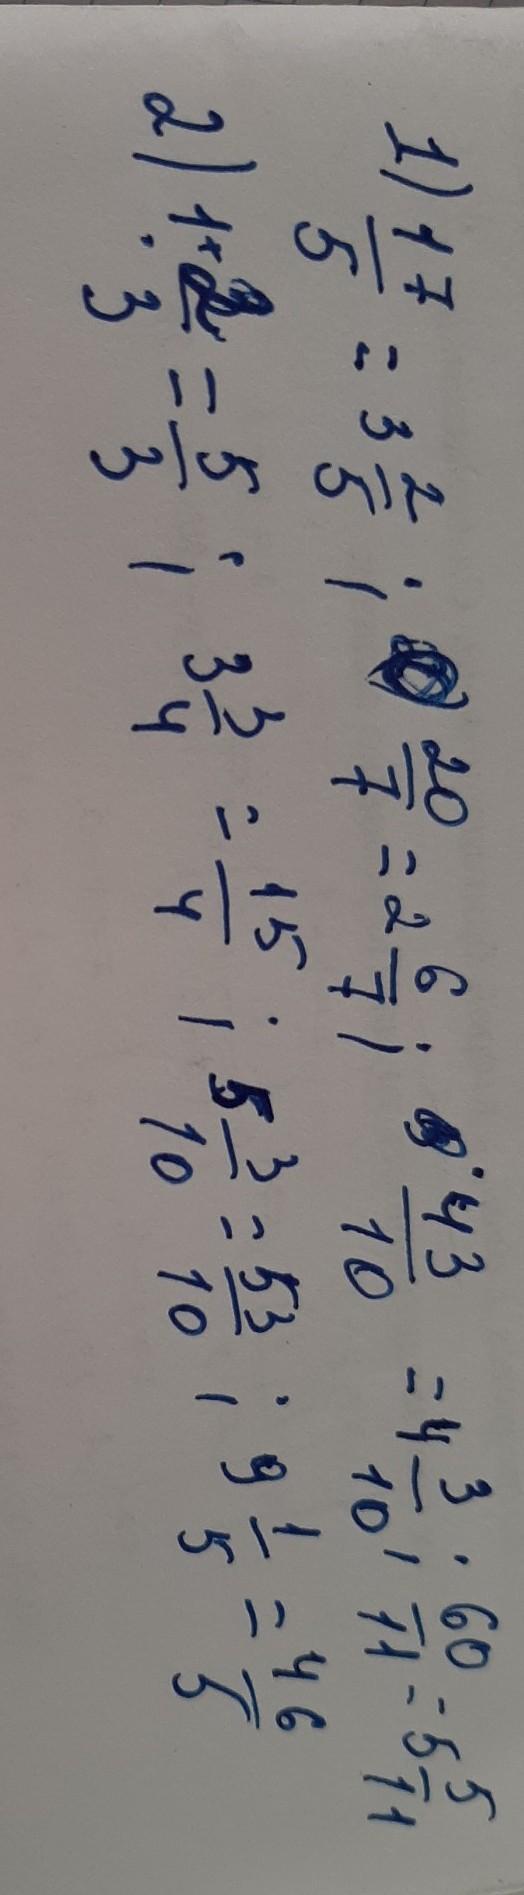 1) 17/5 = 3 2/5 ; 20/7 = 2 6/7 ; 43/10 = 4 3/10 ; 60/11 = 5 5/11
2) 1 2/3 = 5/3 ; 3 3/4 = 15/4 ; 5 3/10 = 53/10 ; 9 1/5 = 46/5